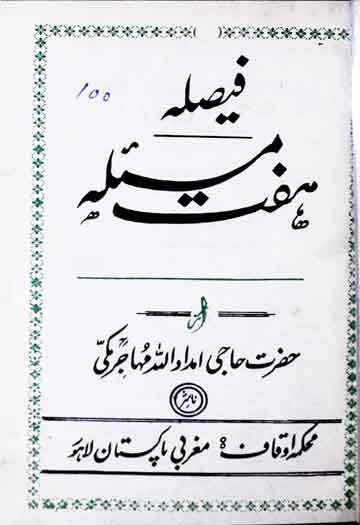 فیصلہ
۱۵۵
ہفت مسئلہ
از
حضرت حاجی امداد اللہ مہاجر مکیؒ
ناشر
محکمہ اوقاف مغربی پاکستان لاہور